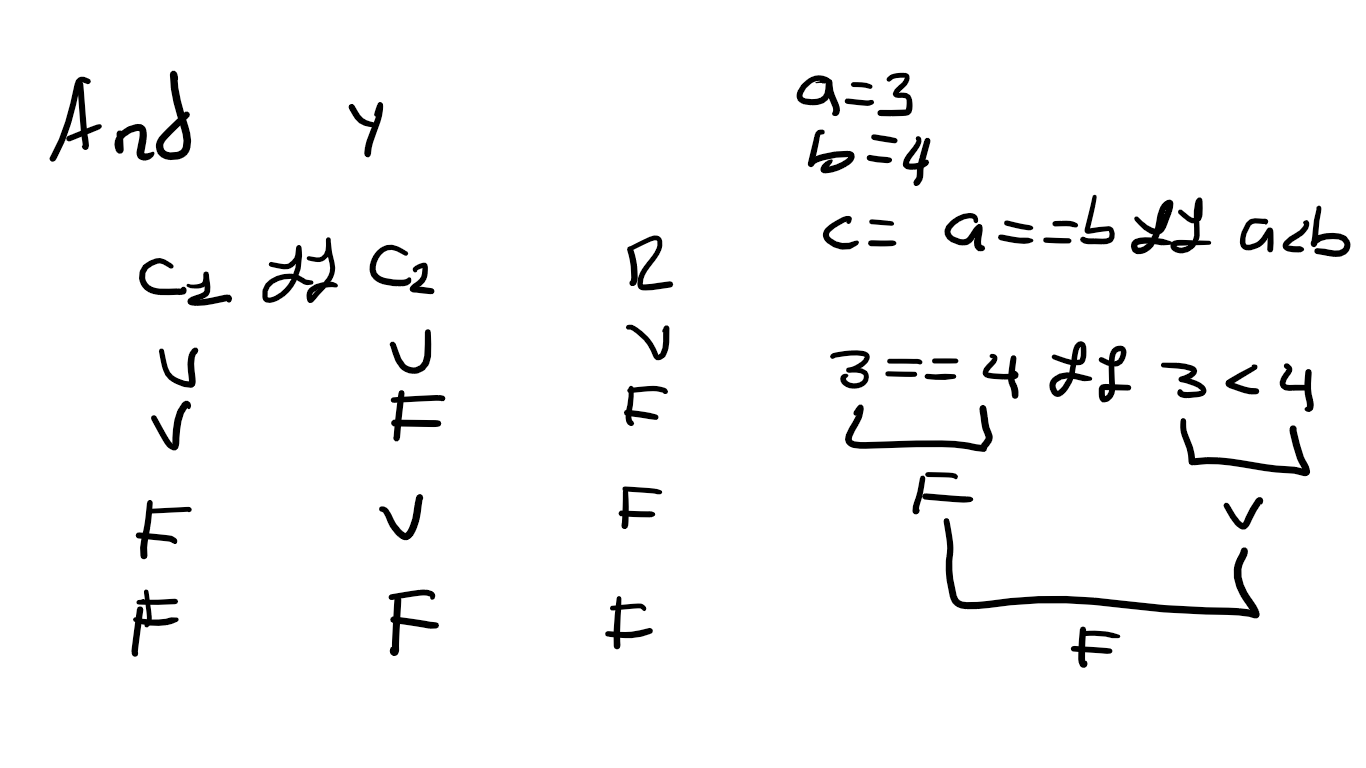 And y
C1 && C2 R
V V V
V F F
F V F
F F F
a=3
b=4
c= a==b && a<b
3==4 && 3<4
F V
F